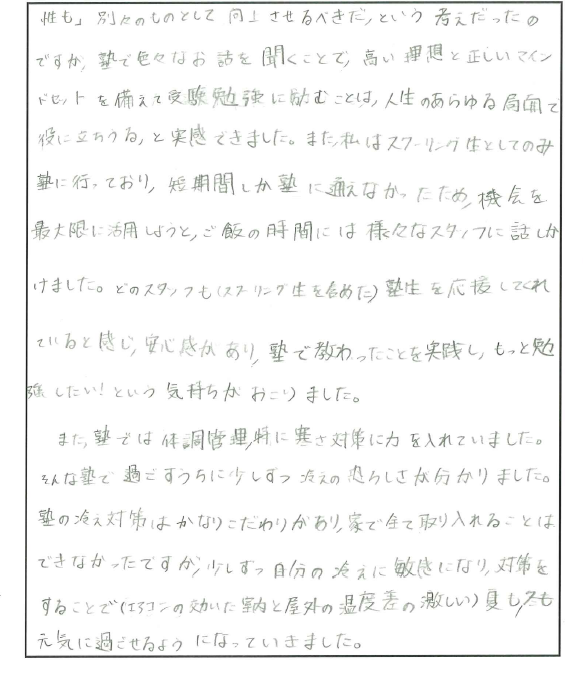 性も」別々のものとして向上させるべきだ、という考えだったの
ですが、塾で色々なお話を聞くことで、高い理想と正しいマイン
ドセットを備えて受験勉強に励むことは、人生のあらゆる局面で
役に立ちうる、と実感できました。また、私はスクーリング生としてのみ
塾に行っており、短期間しか塾に通えなかったため、機会を
最大限に活用しようと、ご飯の時間には様々なスタッフに話しか
けました。どのスタッフも(スクーリング生を含めた)塾生を応援してくれ
ていると感じ、安心感があり、塾で教わったことを実践し、もっと勉
強したい!という気持ちがおこりました。
また、塾では体調管理、特に寒さ対策に力を入れていました。
そんな塾で過ごすうちに少しずつ冷えの恐ろしさが分かりました。
塾の冷え対策はかなりこだわりがあり、家で全て取り入れることは
できなかったですが、少しずつ自分の冷えに敏感になり、対策を
することで(エアコンの効いた室内と屋外の温度差の激しい)夏も、冬も
元気に過ごせるようになっていきました。